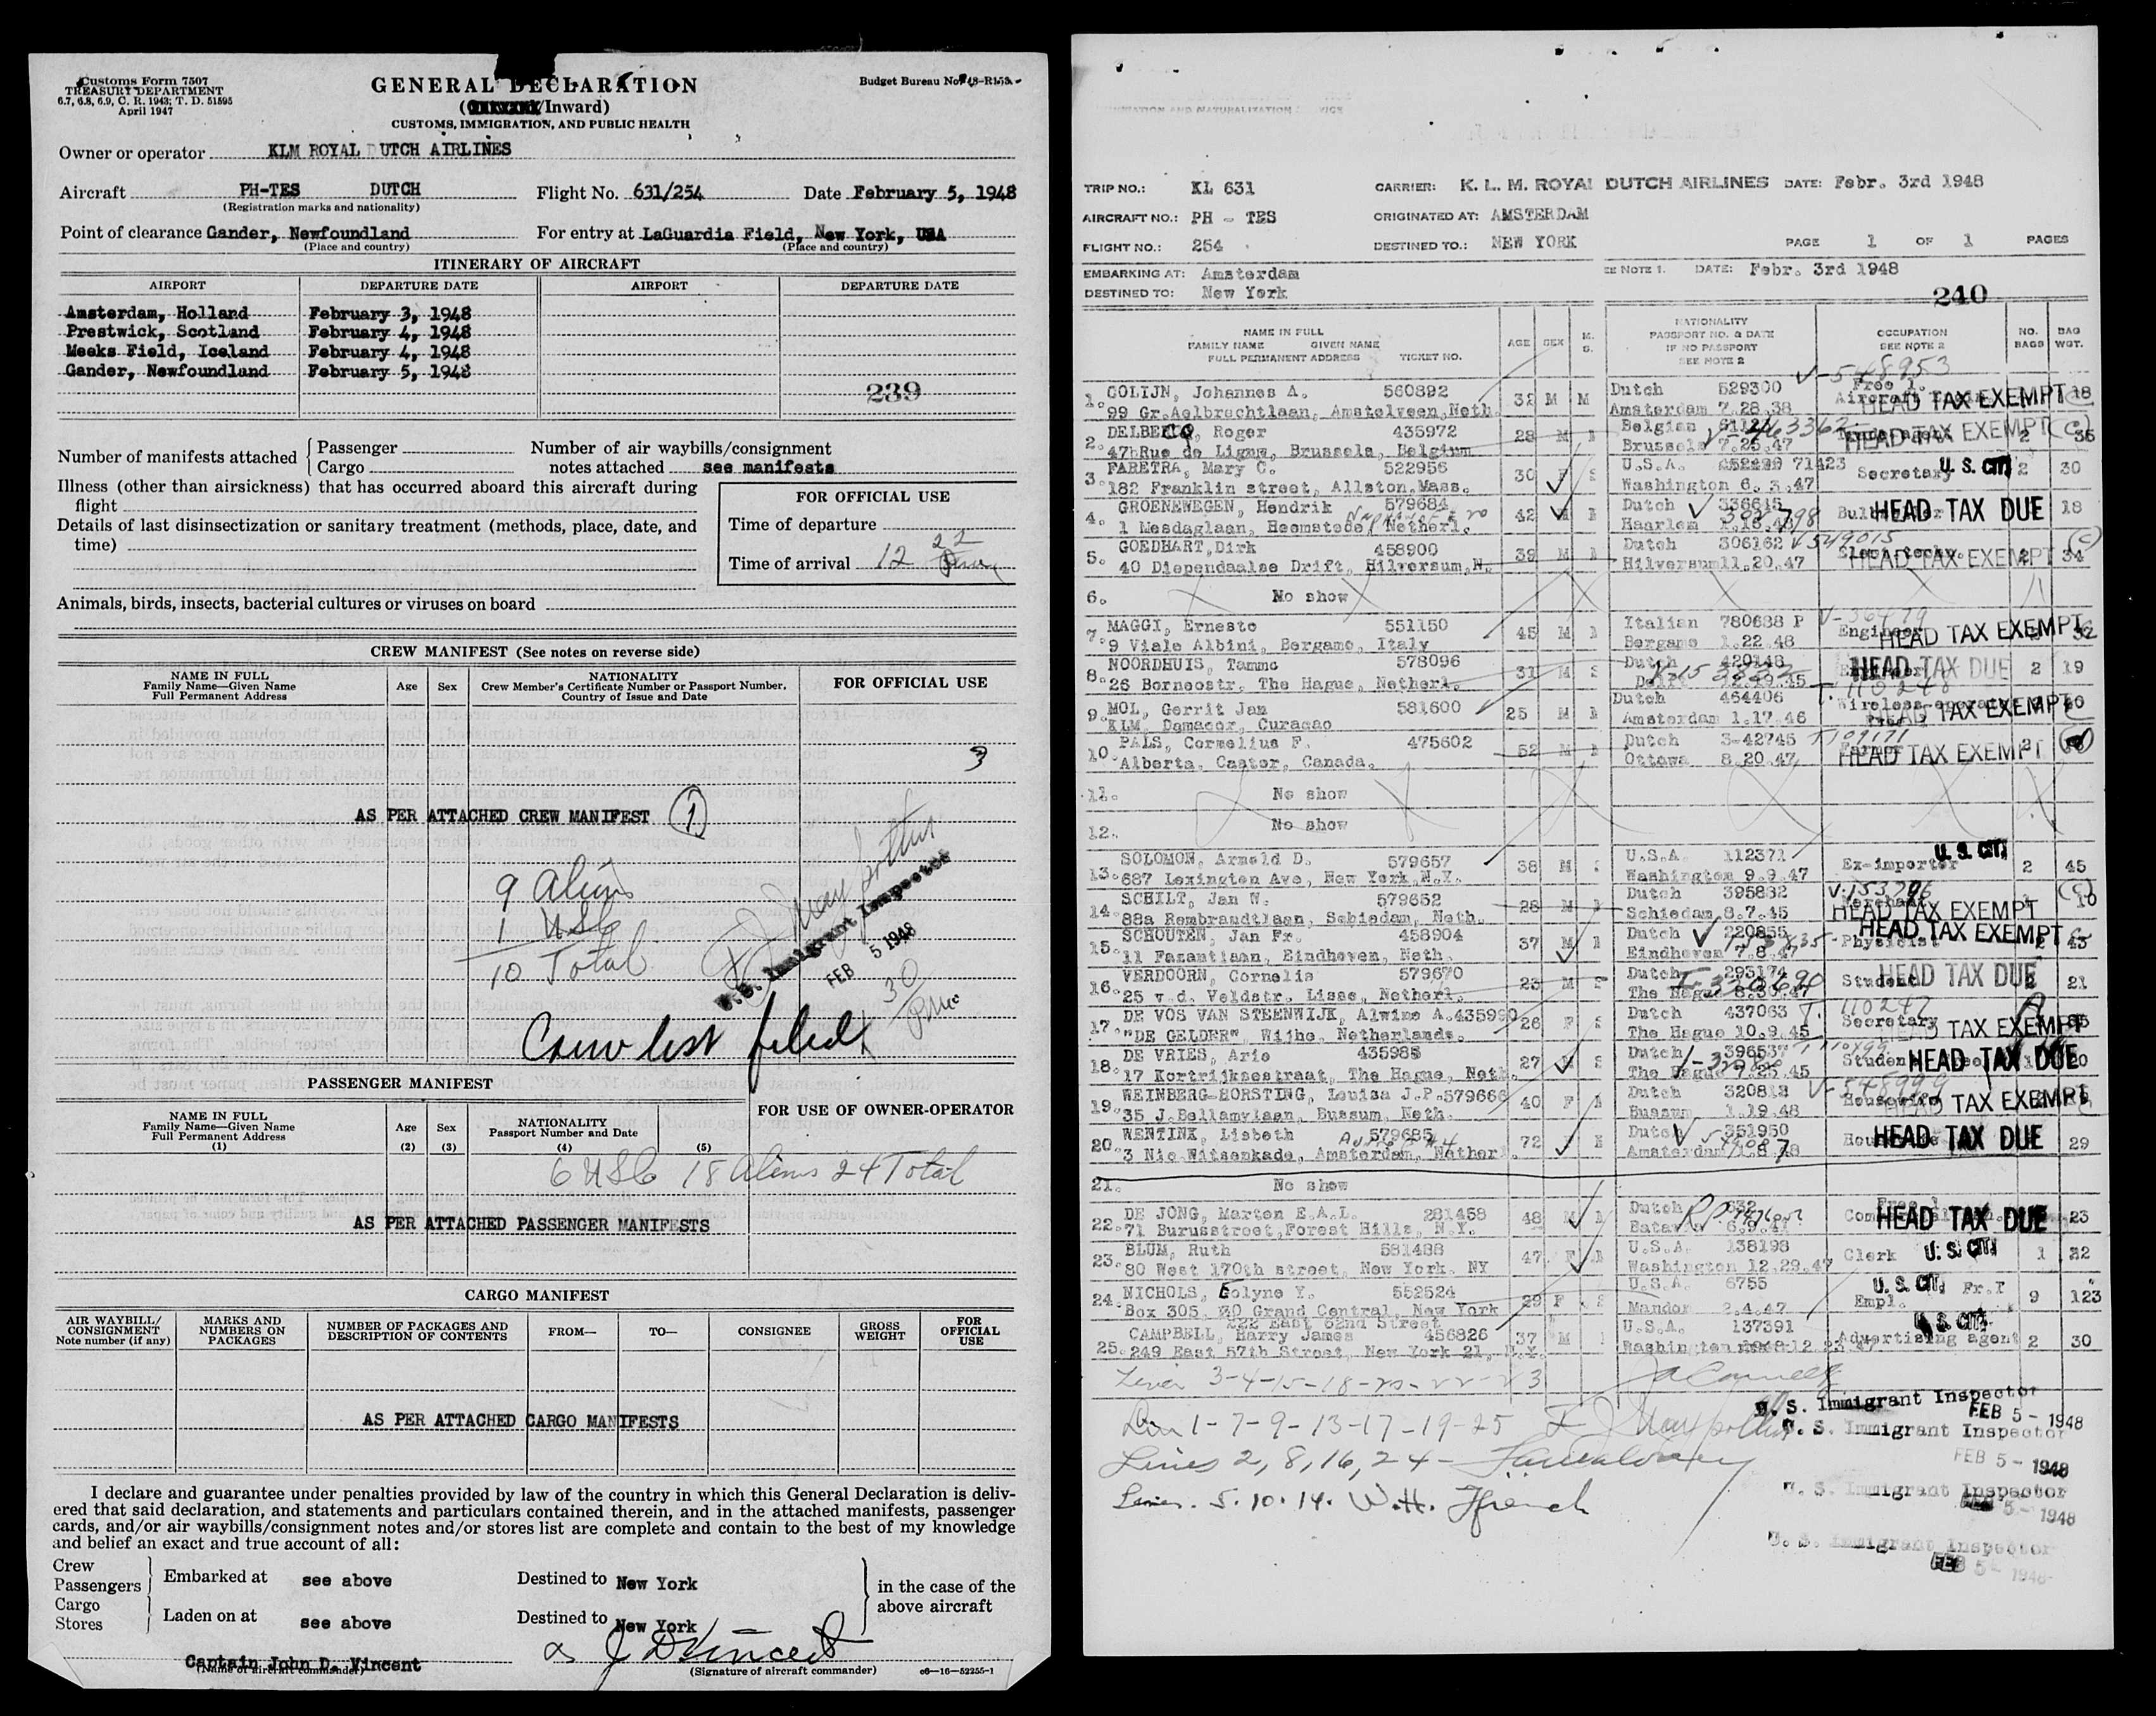 Customs Form 7507
TREASURY DEPARTMENT
6.7, 6.8, 6.9, C. R. 1943; T. D. 51595
April 1947
GENERAL DECLARATION
(Inward)
CUSTOMS, IMMIGRATION, AND PUBLIC HEALTH
Budget Bureau No.
Owner or operator KLM ROYAL DUTCH AIRLINES
Aircraft PH-TES DUTCH Flight No. 631/254 Date February 5, 1948
(Registration marks and nationality)
Point of clearance Gander, Newfoundland For entry at LaGuardia Field, New York, USA
(Place and country) (Place and country)
ITINERARY OF AIRCRAFT
AIRPORT DEPARTURE DATE AIRPORT DEPARTURE DATE
Amsterdam, Holland February 3, 1948
Prestwick, Scotland February 4, 1948
Meeks Field, Iceland February 4, 1948
Gander, Newfoundland February 5, 1948
239
Number of manifests attached { Passenger Number of air waybills/consignment
Cargo notes attached see manifests
Illness (other than airsickness) that has occurred aboard this aircraft during
flight
Details of last disinsectization or sanitary treatment (methods, place, date, and
time)
FOR OFFICIAL USE
Time of departure
Time of arrival 12 22 Pm
Animals, birds, insects, bacterial cultures or viruses on board
CREW MANIFEST (See notes on reverse side)
NAME IN FULL
Family Name—Given Name
Full Permanent Address
Age Sex
NATIONALITY
Crew Member's Certificate Number or Passport Number,
Country of Issue and Date
FOR OFFICIAL USE
3
AS PER ATTACHED CREW MANIFEST 1
9 Aliens
1 USC
10 Total
U.S. Immigrant Inspector
FEB 5 1948
Crew list filed
PASSENGER MANIFEST
NAME IN FULL
Family Name—Given Name
Full Permanent Address
(1)
Age
(2)
Sex
(3)
NATIONALITY
Passport Number and Date
(4) (5)
FOR USE OF OWNER-OPERATOR
6 USC 18 Aliens 24 Total
AS PER ATTACHED PASSENGER MANIFESTS
CARGO MANIFEST
AIR WAYBILL/
CONSIGNMENT
Note number (if any)
MARKS AND
NUMBERS ON
PACKAGES
NUMBER OF PACKAGES AND
DESCRIPTION OF CONTENTS
FROM— TO— CONSIGNEE
GROSS
WEIGHT
FOR
OFFICIAL
USE
AS PER ATTACHED CARGO MANIFESTS
I declare and guarantee under penalties provided by law of the country in which this General Declaration is deliv-
ered that said declaration, and statements and particulars contained therein, and in the attached manifests, passenger
cards, and/or air waybills/consignment notes and/or stores list are complete and contain to the best of my knowledge
and belief an exact and true account of all:
Crew
Passengers
Cargo
Stores
Embarked at see above Destined to New York
Laden on at see above Destined to New York
in the case of the
above aircraft
Captain John D. Vincent
(Name of aircraft commander)
J D Vincent
(Signature of aircraft commander)
c6—16—52255-1
TRIP NO.: KL 631 CARRIER: K. L. M. ROYAL DUTCH AIRLINES DATE: Febr. 3rd 1948
AIRCRAFT NO.: PH - TES ORIGINATED AT: AMSTERDAM
FLIGHT NO.: 254 DESTINED TO.: NEW YORK PAGE 1 OF 1 PAGES
EMBARKING AT: Amsterdam EE NOTE 1. DATE: Febr. 3rd 1948
DESTINED TO: New York
240
NAME IN FULL
FAMILY NAME GIVEN NAME
FULL PERMANENT ADDRESS TICKET NO.
AGE SEX M. S.
NATIONALITY
PASSPORT NO. & DATE
IF NO PASSPORT
SEE NOTE 2
OCCUPATION
SEE NOTE 2
NO.
BAGS
BAG
WGT.
V-548953
1. COLIJN, Johannes A. 560892 32 M M Dutch 529300 HEAD TAX EXEMPT 18
99 Gr.Aelbrechtlaan, Amstelveen, Neth. Amsterdam 7.28.38
2. Roger 435972 28 M Belgian HEAD TAX EXEMPT 2 36
47bRue de Ligne, Brussels, Belgium Brussels 7.25.47
3. FARETRA, Mary C. 522956 30 F S U.S.A. 71423 Secretary U. S. CIT. 2 30
182 Franklin street, Allston, Mass. Washington 6.3.47
4. GROENEWEGEN, Hendrik 579684 42 M Dutch 336645 HEAD TAX DUE 18
1 Mesdaglaan, Heemstede, Netherl. Haarlem
5. GOEDHART, Dirk 458900 39 M Dutch 306162 V 549015 HEAD TAX EXEMPT 2 34
40 Diependaalse Drift, Hilversum, N. Hilversum 11.20.47
6. No show
7. MAGGI, Ernesto 551150 45 M Italian 780688 P Engineer HEAD TAX EXEMPT 32
9 Viale Albini, Bergamo, Italy Bergamo 1.22.48
8. NOORDHUIS, Tammo 578096 31 M S Dutch 420148 HEAD TAX DUE 2 19
26 Borneostr, The Hague, Netherl.
9. MOL, Gerrit Jan 581600 25 M Dutch 464406 T. 110248 HEAD TAX EXEMPT
KLM, Damacor, Curacao Amsterdam 1.17.46
10. PALS, Cornelius F. 475602 52 M Dutch 3-42745 Farmer HEAD TAX EXEMPT 2
Alberta, Castor, Canada. Ottowa 8.20.47
11. No show
12. No show
13. SOLOMON, Arnold D. 579657 38 M U.S.A. 112371 Ex-importer U. S. CIT. 2 45
687 Lexington Ave, New York, N.Y. Washington 9.9.47
14. SCHILT, Jan W. 579652 28 M Dutch 395832 V-153706 HEAD TAX EXEMPT 1 10
88a Rembrandtlaan, Schiedam, Neth. Schiedam 8.7.45
15. SCHOUTEN, Jan Fr. 458904 37 M Dutch 220855 Physicist HEAD TAX EXEMPT 2 43
11 Fazantlaan, Eindhoven, Neth. Eindhoven 7.8.47
16. VERDOORN, Cornelis 579670 23 M S Dutch 293174 Student HEAD TAX DUE 2 21
25 v.d. Veldstr, Lisse, Netherl. The Hague 8.30.47
17. DE VOS VAN STEENWIJK, Alwine A. 435990 26 F S Dutch 437063 T. 110247 Secretary HEAD TAX EXEMPT
"DE GELDER", Wijhe, Netherlands. The Hague 10.9.45
18. DE VRIES, Arie 435988 27 M S Dutch 39653 Student HEAD TAX DUE 1 20
17 Kortrijksestraat, The Hague, Neth. The Hague 7.25.45
19. WEINBERG-HORSTING, Louisa J.P. 579666 40 F Dutch 320812 V-548999 Housewife HEAD TAX EXEMPT
35 J.Bellamylaan, Bussum, Neth. Bussum 1.19.48
20. WENTINK, Lisbeth 579685 72 F Dutch 351950 HEAD TAX DUE 29
3 Nic Witsenkade, Amsterdam, Nether. Amsterdam
21. No show
22. DE JONG, Marten E.A.L. 281458 48 M Dutch HEAD TAX DUE 23
71 Burusstreet, Forest Hills, N.Y.
23. BLUM, Ruth 581488 47 F U.S.A. 138198 Clerk U. S. CIT. 1 22
80 West 170th street, New York, NY Washington 12.29.47
24. NICHOLS, Eolyne Y. 552524 29 F S U.S.A. 6755 Empl. U. S. CIT. Fr.I 9 123
Box 305, Grand Central, New York 2.4.47
322 East 62nd Street
25. CAMPBELL, Harry James 456826 37 M U.S.A. 137391 Advertising agent U. S. CIT. 2 30
249 East 57th Street, New York 21, N.Y.
Lines 3-4-15-18-20-22-23
Lin 1-7-9-13-17-19-25
U. S. Immigrant Inspector
FEB 5 - 1948
U. S. Immigrant Inspector
Lines 2, 8, 16, 24 -
FEB 5 - 1948
U. S. Immigrant Inspector
Lines. 5. 10. 14. W. H. Ffrench
FEB 5 - 1948
U. S. Immigrant Inspector
FEB 5 - 1948